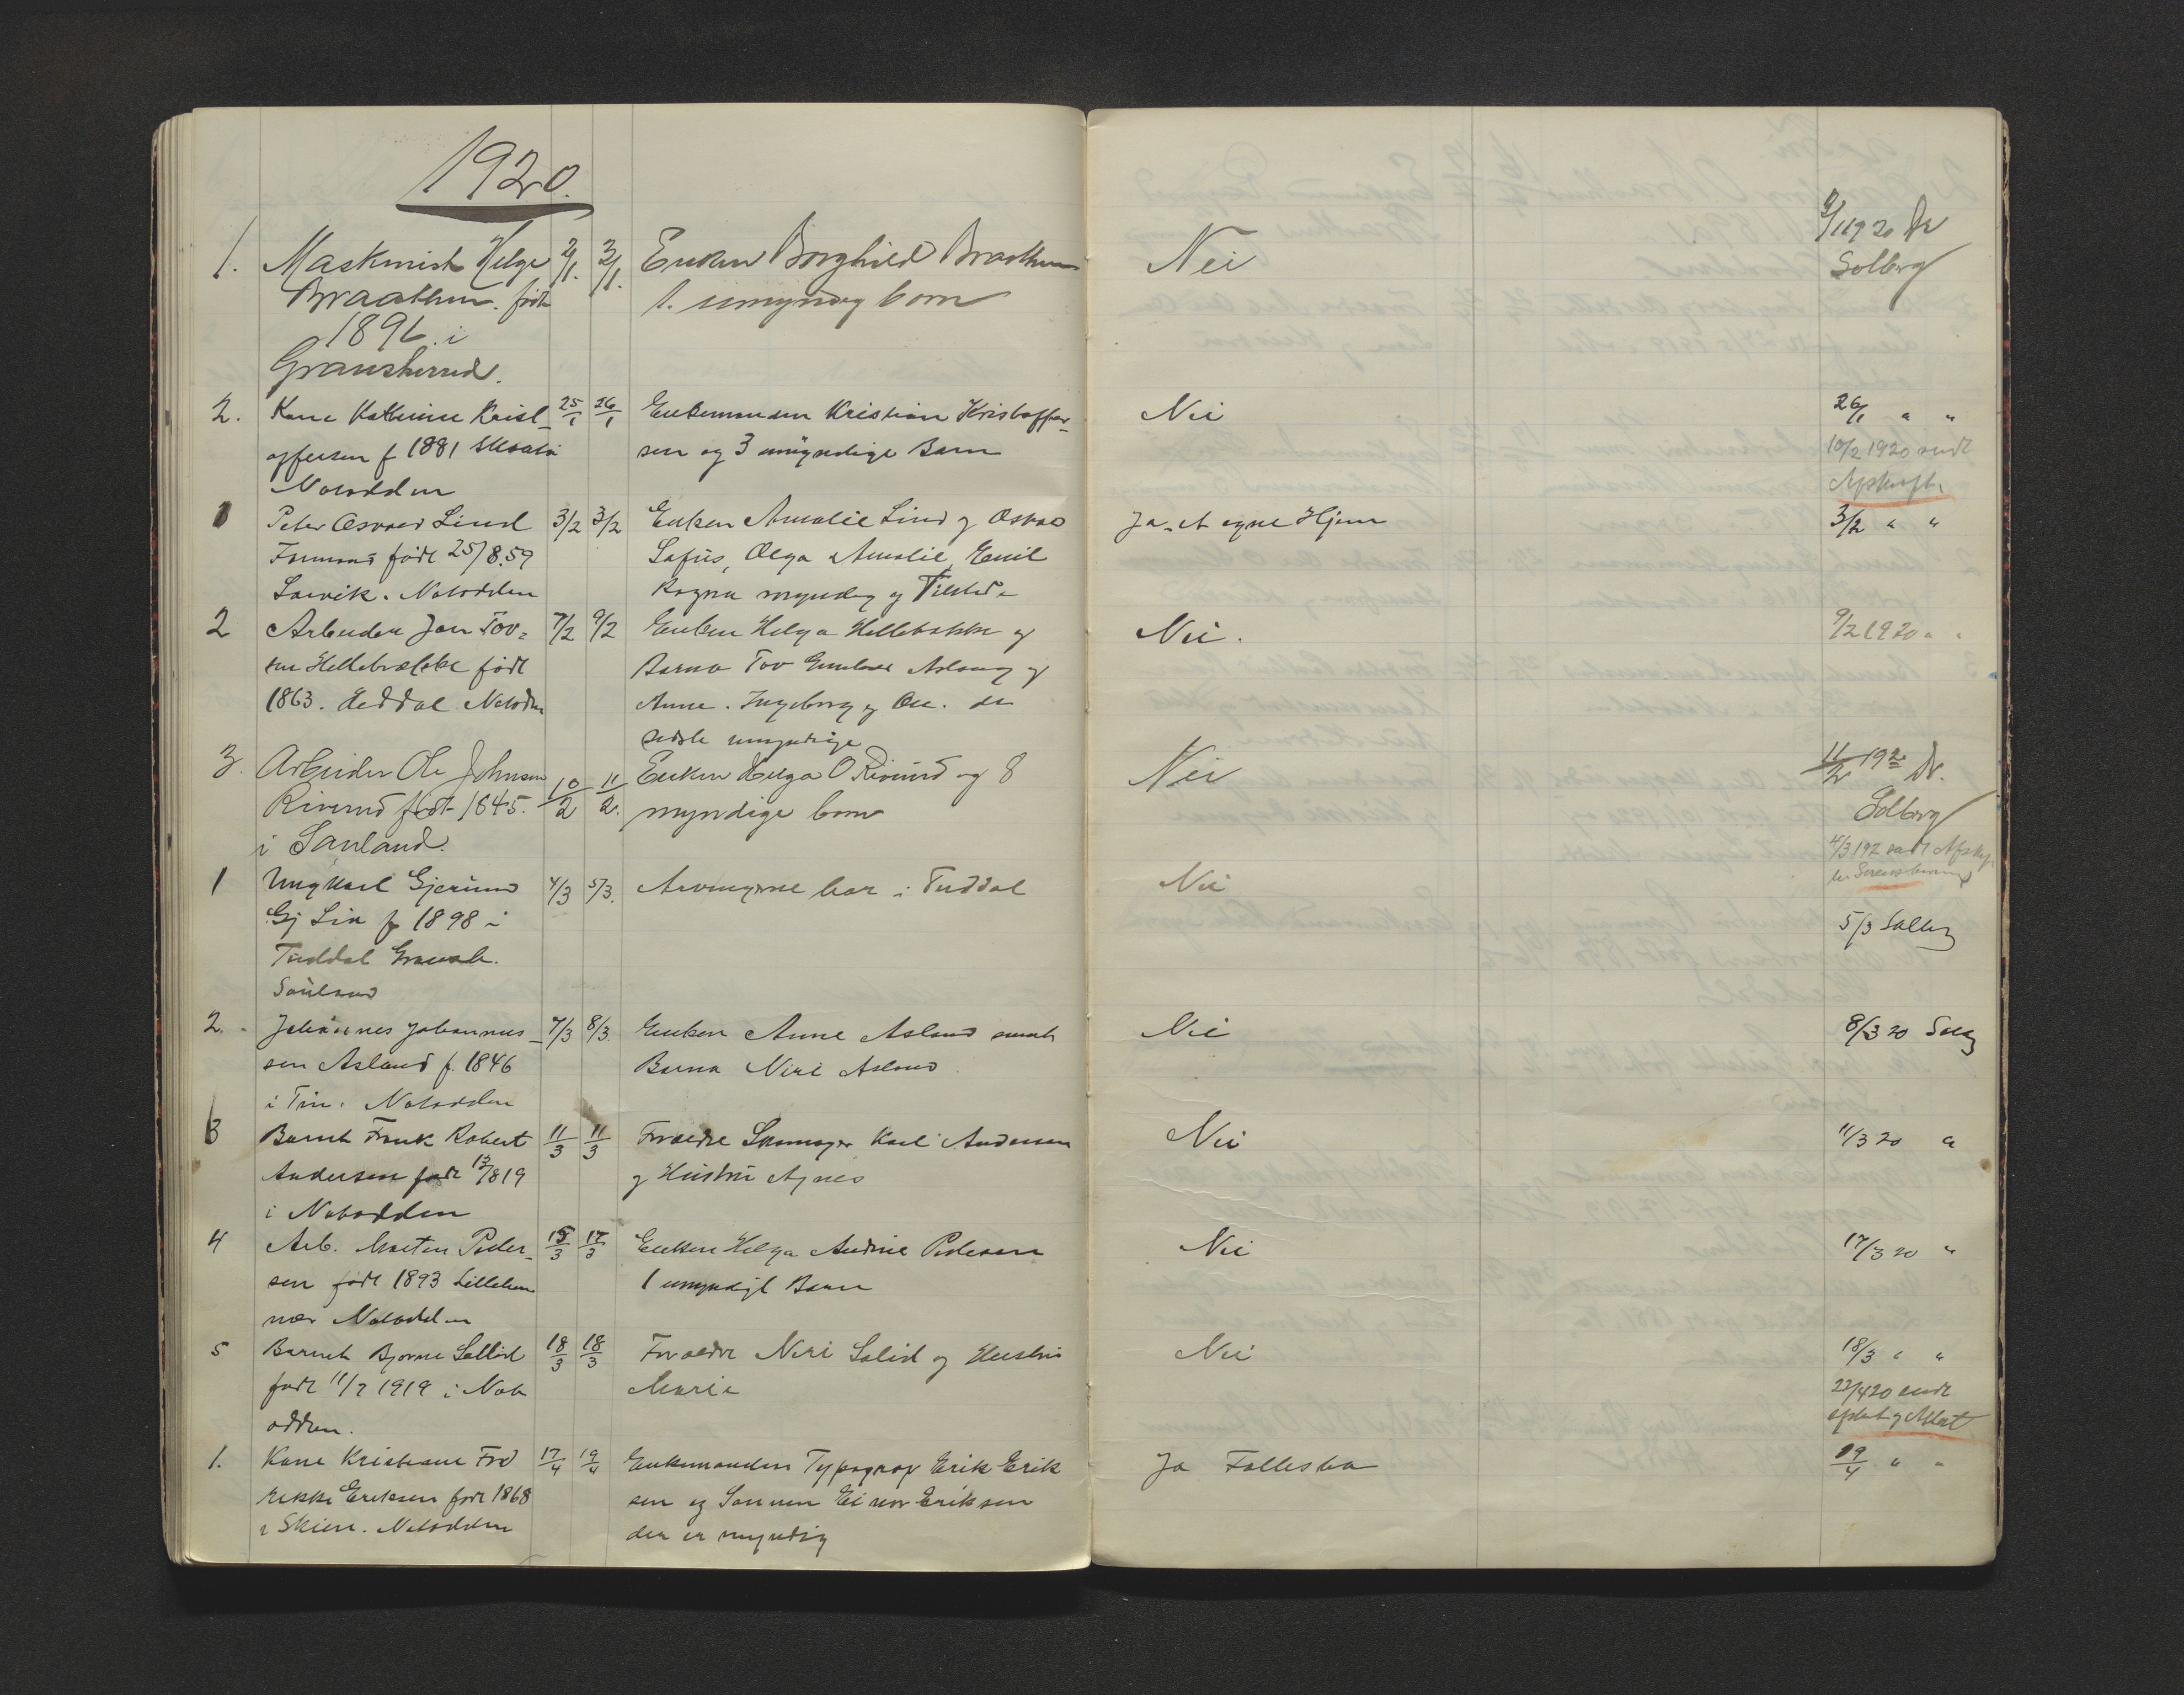 1920.
1. Maskinist Helge 2/1. 3/1. Enken Borghild Braathen Nei 2/1 1920 Dr
Braathen. født 1. umyndig barn Solberg
1896. i
Gransherred.
2. Kone Kathrine Krist- 25/1 26/1 Enkemanden Kristian Kristoffer- Nei 26/1 " "
offersen f 1881 sen og 3 umyndige Barn 10/2 1920 sendt
Notodden Afskrift.
1 Peter Osvald Lind 3/2 3/2 Enken Amalie Lind og Osvald Ja, et egne Hjem 3/2 " "
Formand født 25/8.59 Lafus, Olga Amalie, Emil
Larvik. Notodden Ragna myndig og Tilsted
2 Arbeider Jon Tov= 7/2 9/2 Enken Helga Hellebække og Nei. 9/2 1920 " "
sen Hellebække født Barna Tov Aslaug og
1863. Heddal Notodden Anne. Ingeborg og Ole. de
sidste umyndige
3. Arbeider Ole Johnsen 10/2 11/2. Enken Helga O Riverud og 8 Nei 11/2 1920 Dr.
Riverud født 1845. myndige barn Solberg
i Sauland. 4/3 192 sendt Afskr.
1 Ungkarl Gjermund 4/3 5/3. Arvingerne bor i Tuddal Nei
Gj Lia f 1898 i 5/3 Solberg
Tuddal Gransh.
Sauland
2. Johannes Johannes- 7/3 8/3. Enken Anne Asland samt Nei 8/3 20 Solbg
sen Asland f. 1846 Barna Niri Asland.
i Tin. Notodden
3 Barnet Frank Robert 11/3 11/3 Foreldre Karl Andersen Nei 11/3 20 "
Andersen født 13/8 19 og Hustru Agnes
i Notodden
4 Arb. Morten Peder- 15/3 17/3 Enken Helga Andrine Pedersen Nei 17/3 20 "
sen født 1893 Lilleham 1 umyndigt Barn
mer Notodden
5 Barnet Bjarne Sollid 18/3 18/3 Foreldre Niri Solid og Hustru Nei 18/3 " "
født 11/7 1919 i Not Marie 22/4 20 sendt
odden. afskrt og Attest
1. Kone Kristiane Fred 17/4 19/4 Enkemanden Typograf Erik Erik Ja Fællesbo 19/4 " "
rikke Eriksen født 1868 sen og Sønnen Einar Eriksen
i Skien. Notodden der er myndig